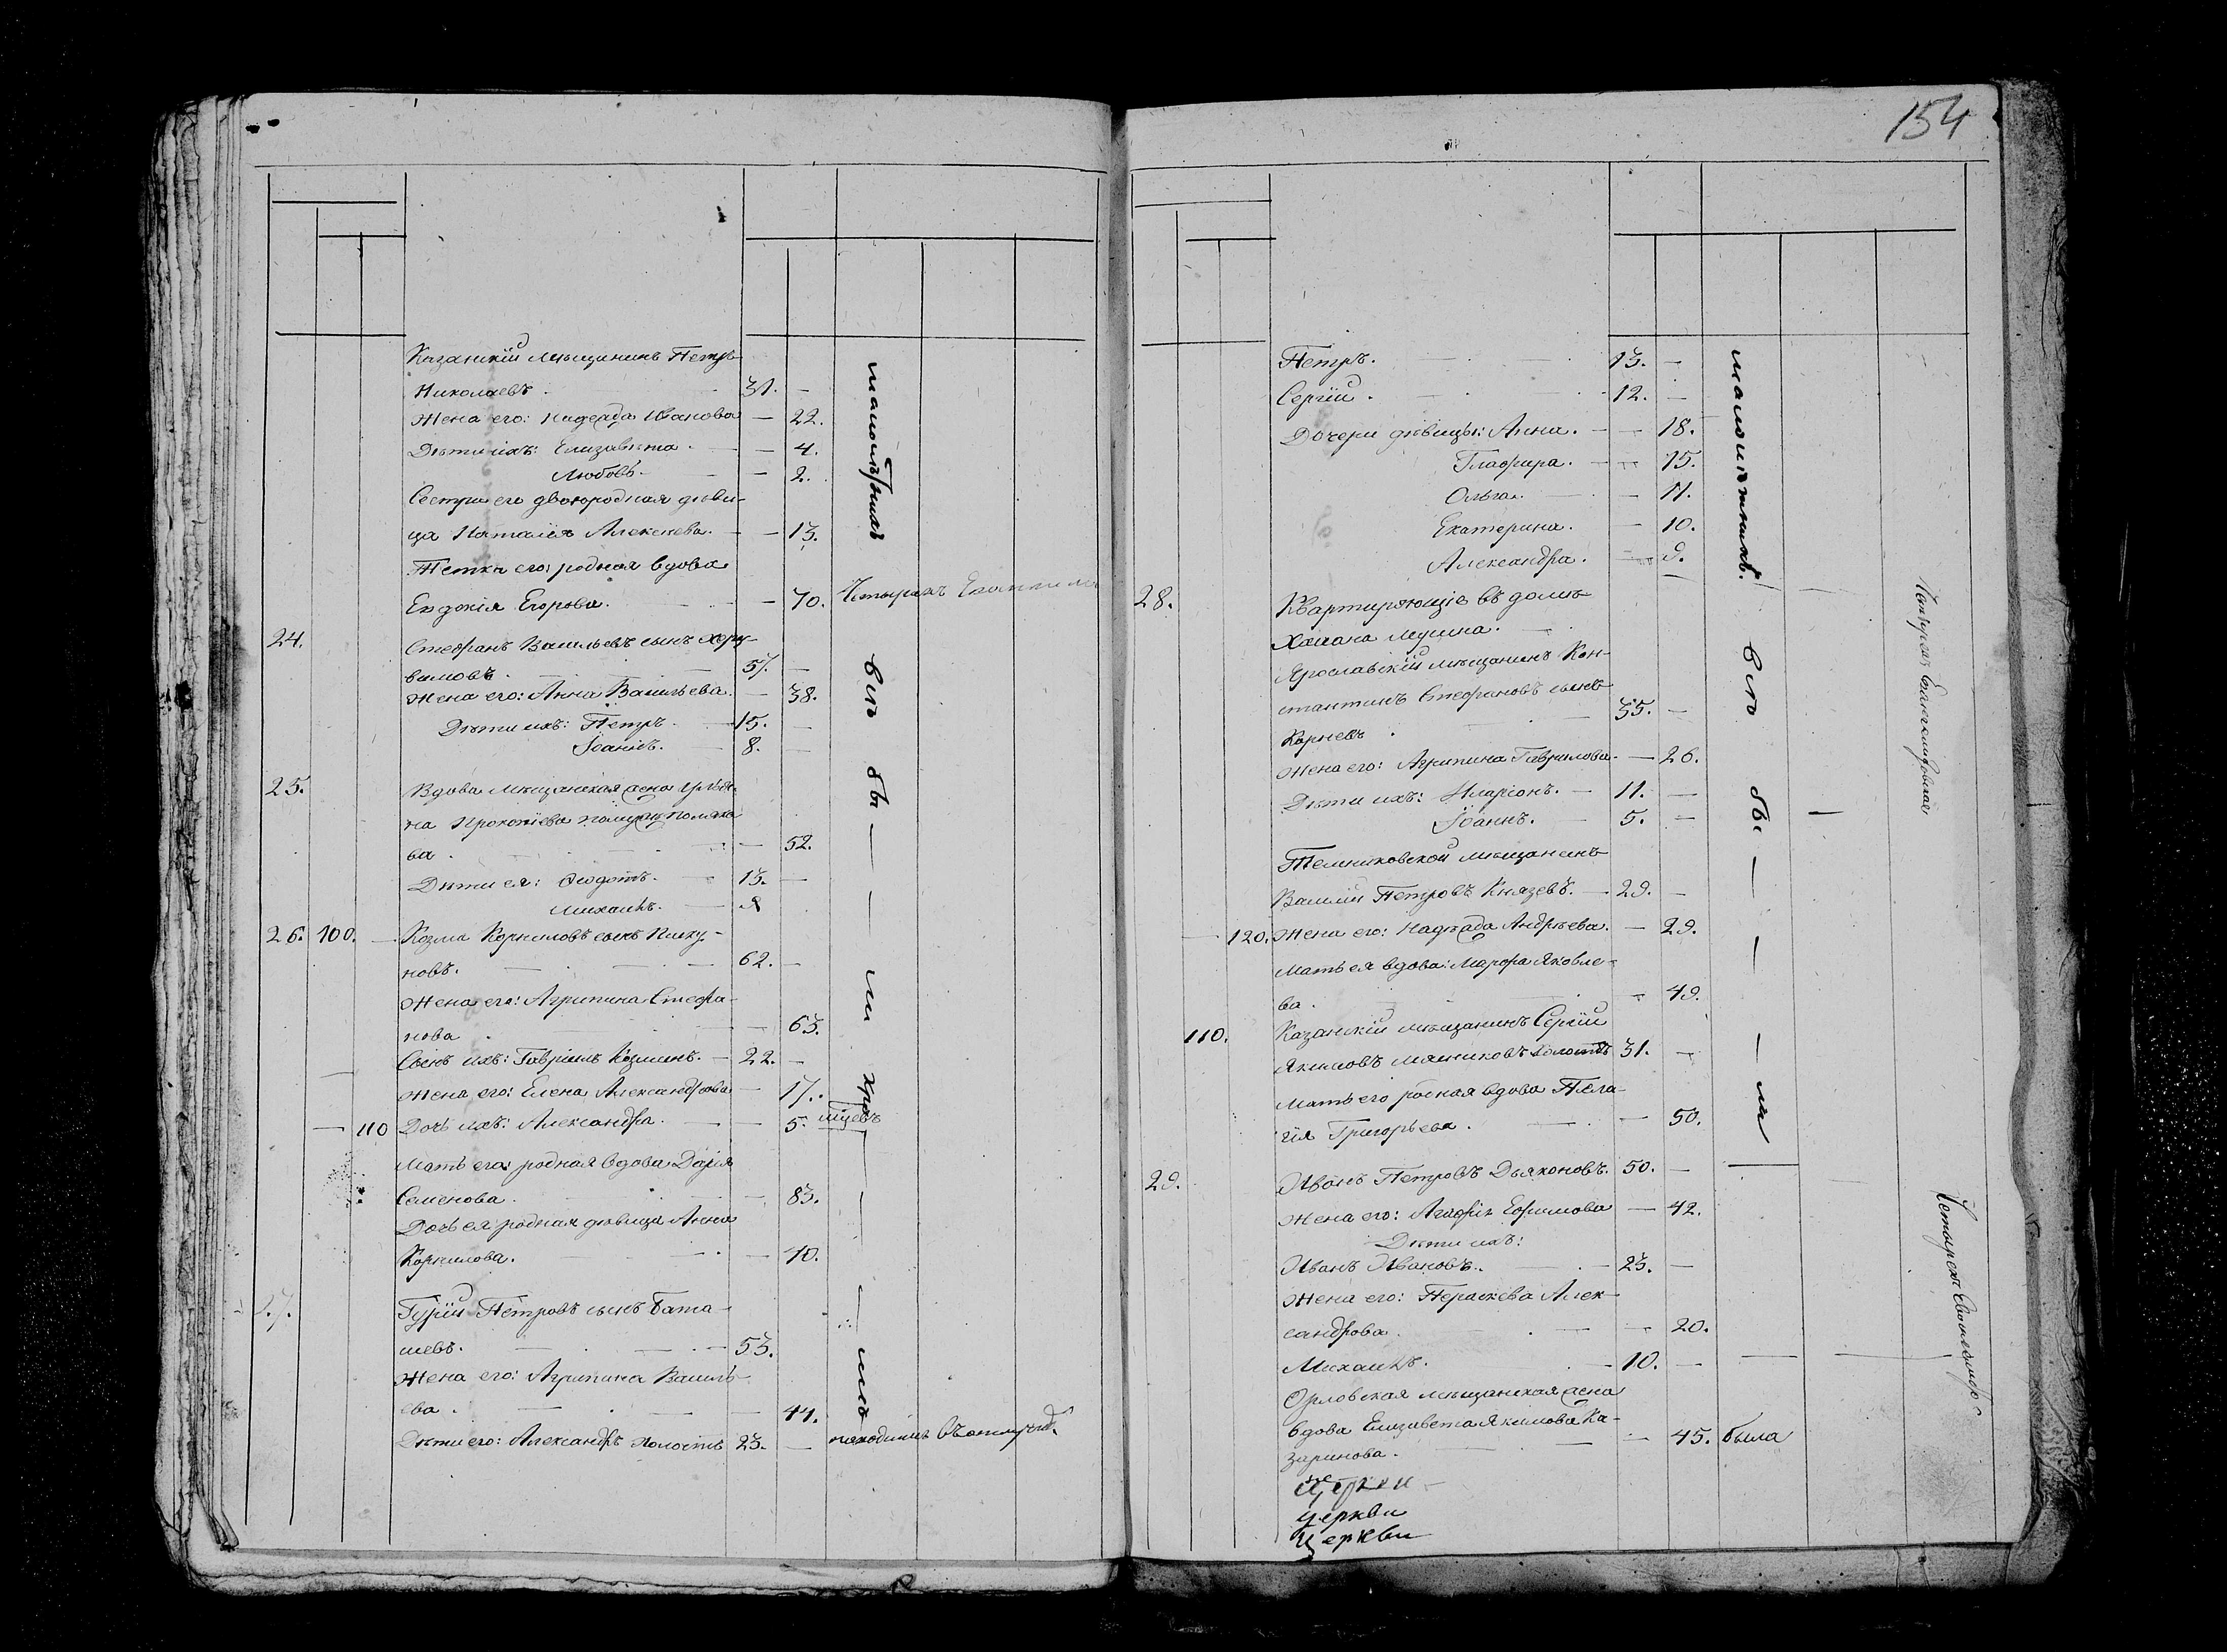 154
Казанскій мѣщанинъ Петръ
Николаевъ. 31. —
Жена его: Надежда Иванова — 22.
Дѣти ихъ: Елизавета. — 4.
Любовь. — 2.
Сестра его двоюродная дѣви-
ца Наталія Алексѣева. — 13.
Тетка его родная вдова
Евдокія Егорова. — 70.
24. Стефанъ Васильевъ сынъ Херу-
вимовъ. 57. —
Жена его: Анна Васильева. — 38.
Дѣти ихъ: Петръ. 15. —
Іоаннъ. 8. —
25. Вдова мѣщанская жена
на Прокопіева
ва. — 52.
Дѣти ея: Ѳеодотъ. 13. —
Михаилъ.
26. 100. — Козма Корниловъ сынъ
новъ. — 62. —
Жена его: Агрипина Стефа-
нова — 63.
Сынъ ихъ: Гавріилъ Козминъ. — 22. —
Жена его: Елена Александрова — 17.
— 110 Дочь ихъ: Александра. — 5.
Мать его родная вдова Дарія
Семенова. — 83.
Дочь ея родная дѣвица Анна
Корнилова. — 40.
27. Гурій Петровъ сынъ Бата-
шевъ. — 53.
Жена его: Агрипина Василь-
ева. — 44.
Дѣти его: Александръ холостъ 23. —
малолѣтнихъ
всѣ бы — — ли
Петръ. 13. —
Сергій. 12. —
Дочери дѣвицы: Анна. — 18.
Глафира. — 15.
Ольга. — 11.
Екатерина. — 10.
Александра. — 9.
28. Квартирующіе въ домѣ
Ярославскій мѣщанинъ Кон-
стантинъ Стефановъ сынъ
Корневъ. 35. —
Жена его: Агрипина Гаврилова. — 26.
Дѣти ихъ: Иларіонъ. — 11. —
Іоаннъ. 5. —
Темниковской мѣщанинъ
Василій Петровъ Князевъ. — 29. —
— 120. Жена его: Надежда Андреева. — 29.
Мать ея вдова: Марфа Яковле-
ва. — 49.
110. Казанскій мѣщанинъ Сергій
Якимовъ Мясниковъ холостъ 31. —
Мать его родная вдова Пела-
гія Григорьева. — 50.
29. Иванъ Петровъ Дьяконовъ. 50. —
Жена его: Агафія Ефимова — 42.
Дѣти ихъ:
Иванъ Ивановъ. — 23. —
Жена его: Параскева Алек-
сандрова. — 20.
Михаилъ. — 10. —
Орловская мѣщанская жена
вдова Елизавета Якимова Ка-
заринова. — 45. была
церкви
церкви
малолѣтнихъ.
всѣ бы — — — ли